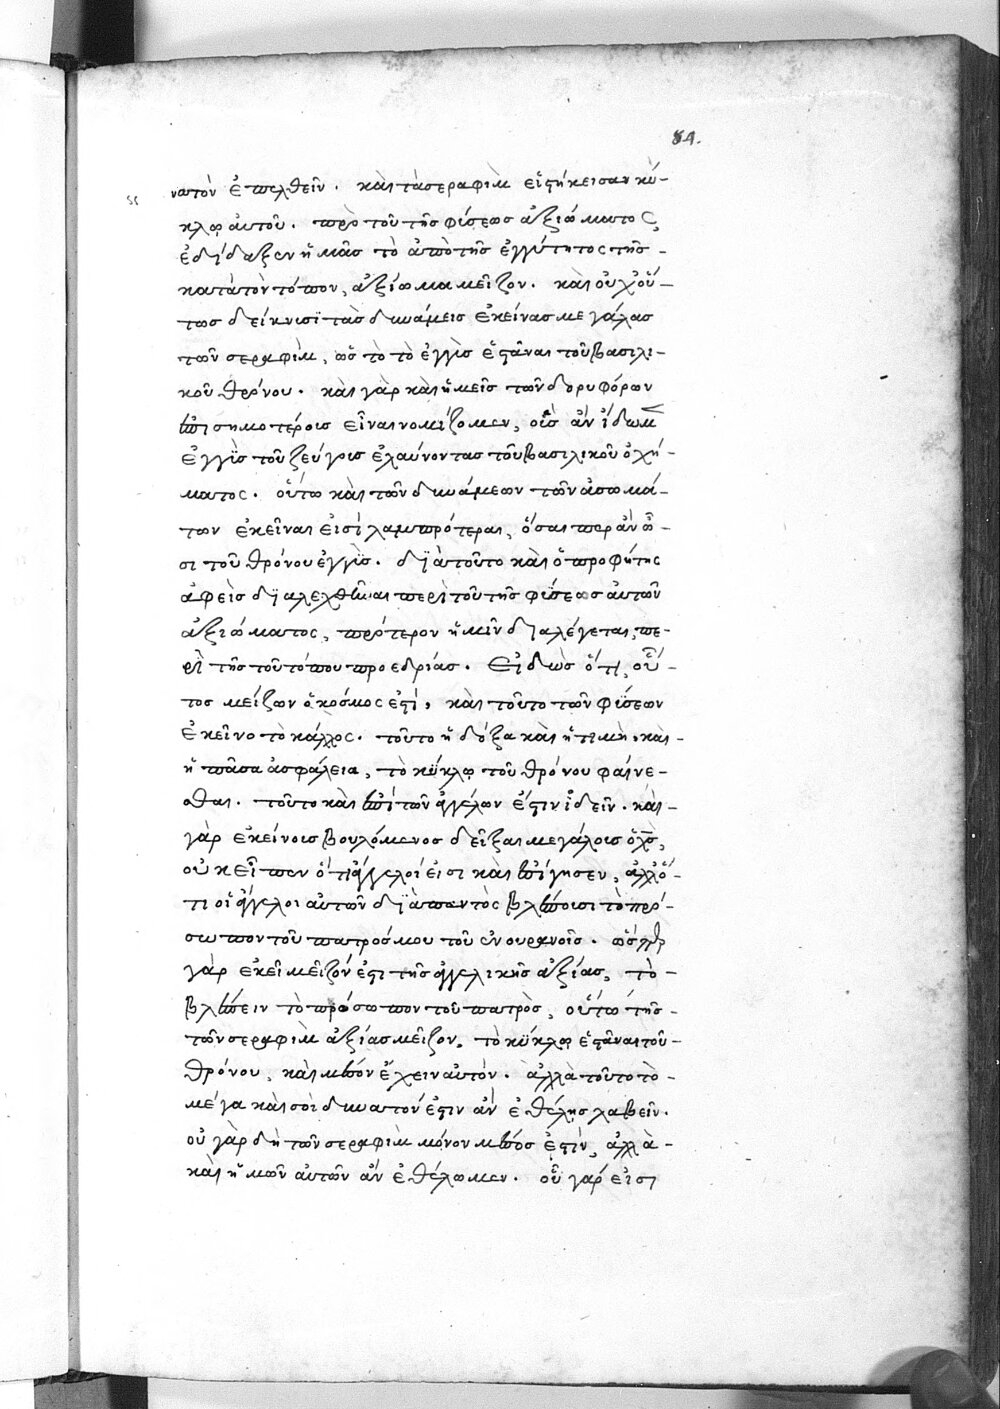 84.
νατὸν ἐπελθεῖν. καὶ τὰ σεραφὶμ εἱστήκεισαν κύ-
κλῳ αὐτοῦ. πρὸ τοῦ τῆς φύσεως ἀξιώματος,
ἐδίδαξεν ἡμᾶς τὸ ἀπὸ τῆς ἐγγύτητος τῆς-
κατὰ τὸν τόπον, ἀξίωμα μεῖζον. καὶ οὐχ' οὕ-
τως δείκνυσι τὰς δυνάμεις ἐκείνας μεγάλας
τῶν σεραφὶμ, ὡς τὸ τὸ ἐγγὺς ἑστᾶναι τοῦ βασιλι-
κοῦ θρόνου. καὶ γὰρ καὶ ἡμεῖς τῶν δορυφόρων
ἐπισημοτέροις εἶναι νομίζομεν, οἷς ἂν ἴδωμεν
ἐγγὺς τοῦ ζεύγοις ἐλαύνοντας τοῦ βασιλικοῦ ὀχή-
ματος. οὕτω καὶ τῶν δυνάμεων τῶν ἀσωμά-
των ἐκεῖναι εἰσὶ λαμπρότεραι, ὅσαι περ ἂν ὦ-
σι τοῦ θρόνου ἐγγὺς. διὰ τοῦτο καὶ ὁ προφήτης
ἀφεὶς διαλεχθῆναι περὶ τοῦ τῆς φύσεως αὐτῶν
ἀξιώματος, πρότερον ἡμῖν διαλέγεται, πε-
ρὶ τῆς τοῦ τόπου προεδρίας. Εἰδὼς ὅτι, οὗ-
τος μείζων ὁ κόσμος ἐστί, καὶ τοῦτο τῶν φύσεων
ἐκεῖνο τὸ κάλλος. τοῦτο ἡ δόξα καὶ ἡ τιμὴ, καὶ-
ἡ πᾶσα ἀσφάλεια, τὸ κύκλῳ τοῦ θρόνου φαίνε-
σθαι. τοῦτο καὶ ἐπὶ τῶν ἀγγέλων ἔστιν ἰδεῖν. καὶ-
γὰρ ἐκείνοις βουλόμενος δεῖξαι μεγάλοις ὁ χς,
οὐκ εἶπεν ὅτι ἄγγελοί εἰσι καὶ ἐσίγησεν, ἀλλ' ὅ-
τι οἱ ἄγγελοι αὐτῶν διὰ παντὸς βλέποισι τὸ πρό-
σωπον τοῦ πατρός μου τοῦ ἐν ουρανοῖς. ὥσπερ
γὰρ ἐκεῖ μεῖζόν ἐστι τῆς ἀγγελικῆς ἀξίας, τὸ-
βλέπειν τὸ πρόσωπον τοῦ πατρὸς, οὕτω τῆς-
τῶν σεραφὶμ ἀξίας μεῖζον, τὸ κύκλῳ ἑστᾶναι τοῦ-
θρόνου, καὶ μέσον ἔχειν αὐτόν. ἀλλὰ τοῦτο τὸ-
μέγα καὶ σοὶ δυνατόν ἐστιν ἂν ἐθέλῃς λαβεῖν.
οὐ γὰρ δὴ τῶν σεραφὶμ μόνον μέσος ἐστὶν, ἀλλὰ-
καὶ ἡμῶν αὐτῶν ἂν ἐθέλωμεν. οὗ γάρ εἰσι